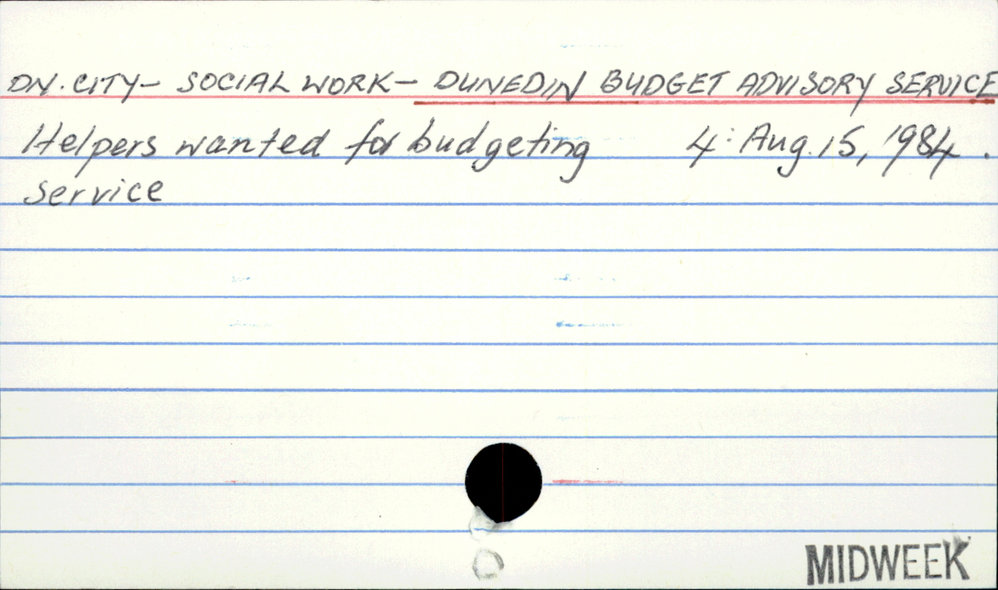 DN. CITY - SOCIAL WORK - DUNEDIN BUDGET ADVISORY SERVICE
Helpers wanted for budgeting 4: Aug. 15, 1984.
service
MIDWEEK